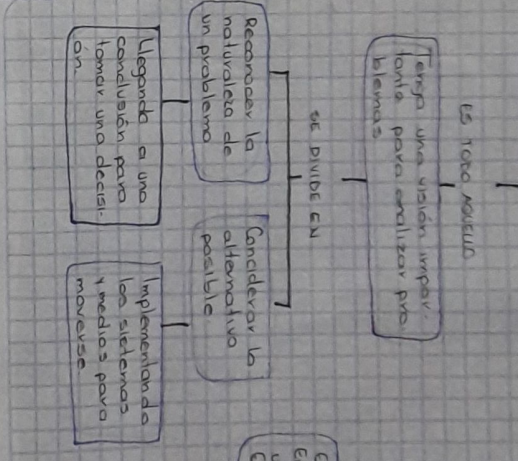 ES TODO AQUELLO
Tenga una visión impar-
tante para analizar pro
blemas
SE DIVIDE EN
Reconocer la
naturaleza de
un problema
Conciderar la
alternativa
posible.
Llegando a una
conclusión para
tomar una decisi-
ón
Implementando
los sistemas
y medios para
moverse.